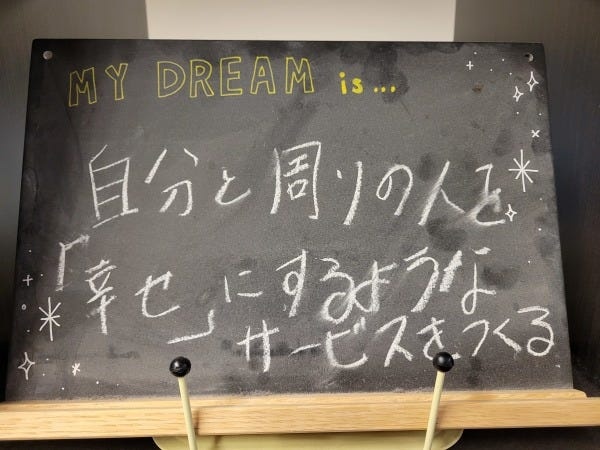 MY DREAM is...
自分と周りの人を
「幸せ」にするような
サービスをつくる